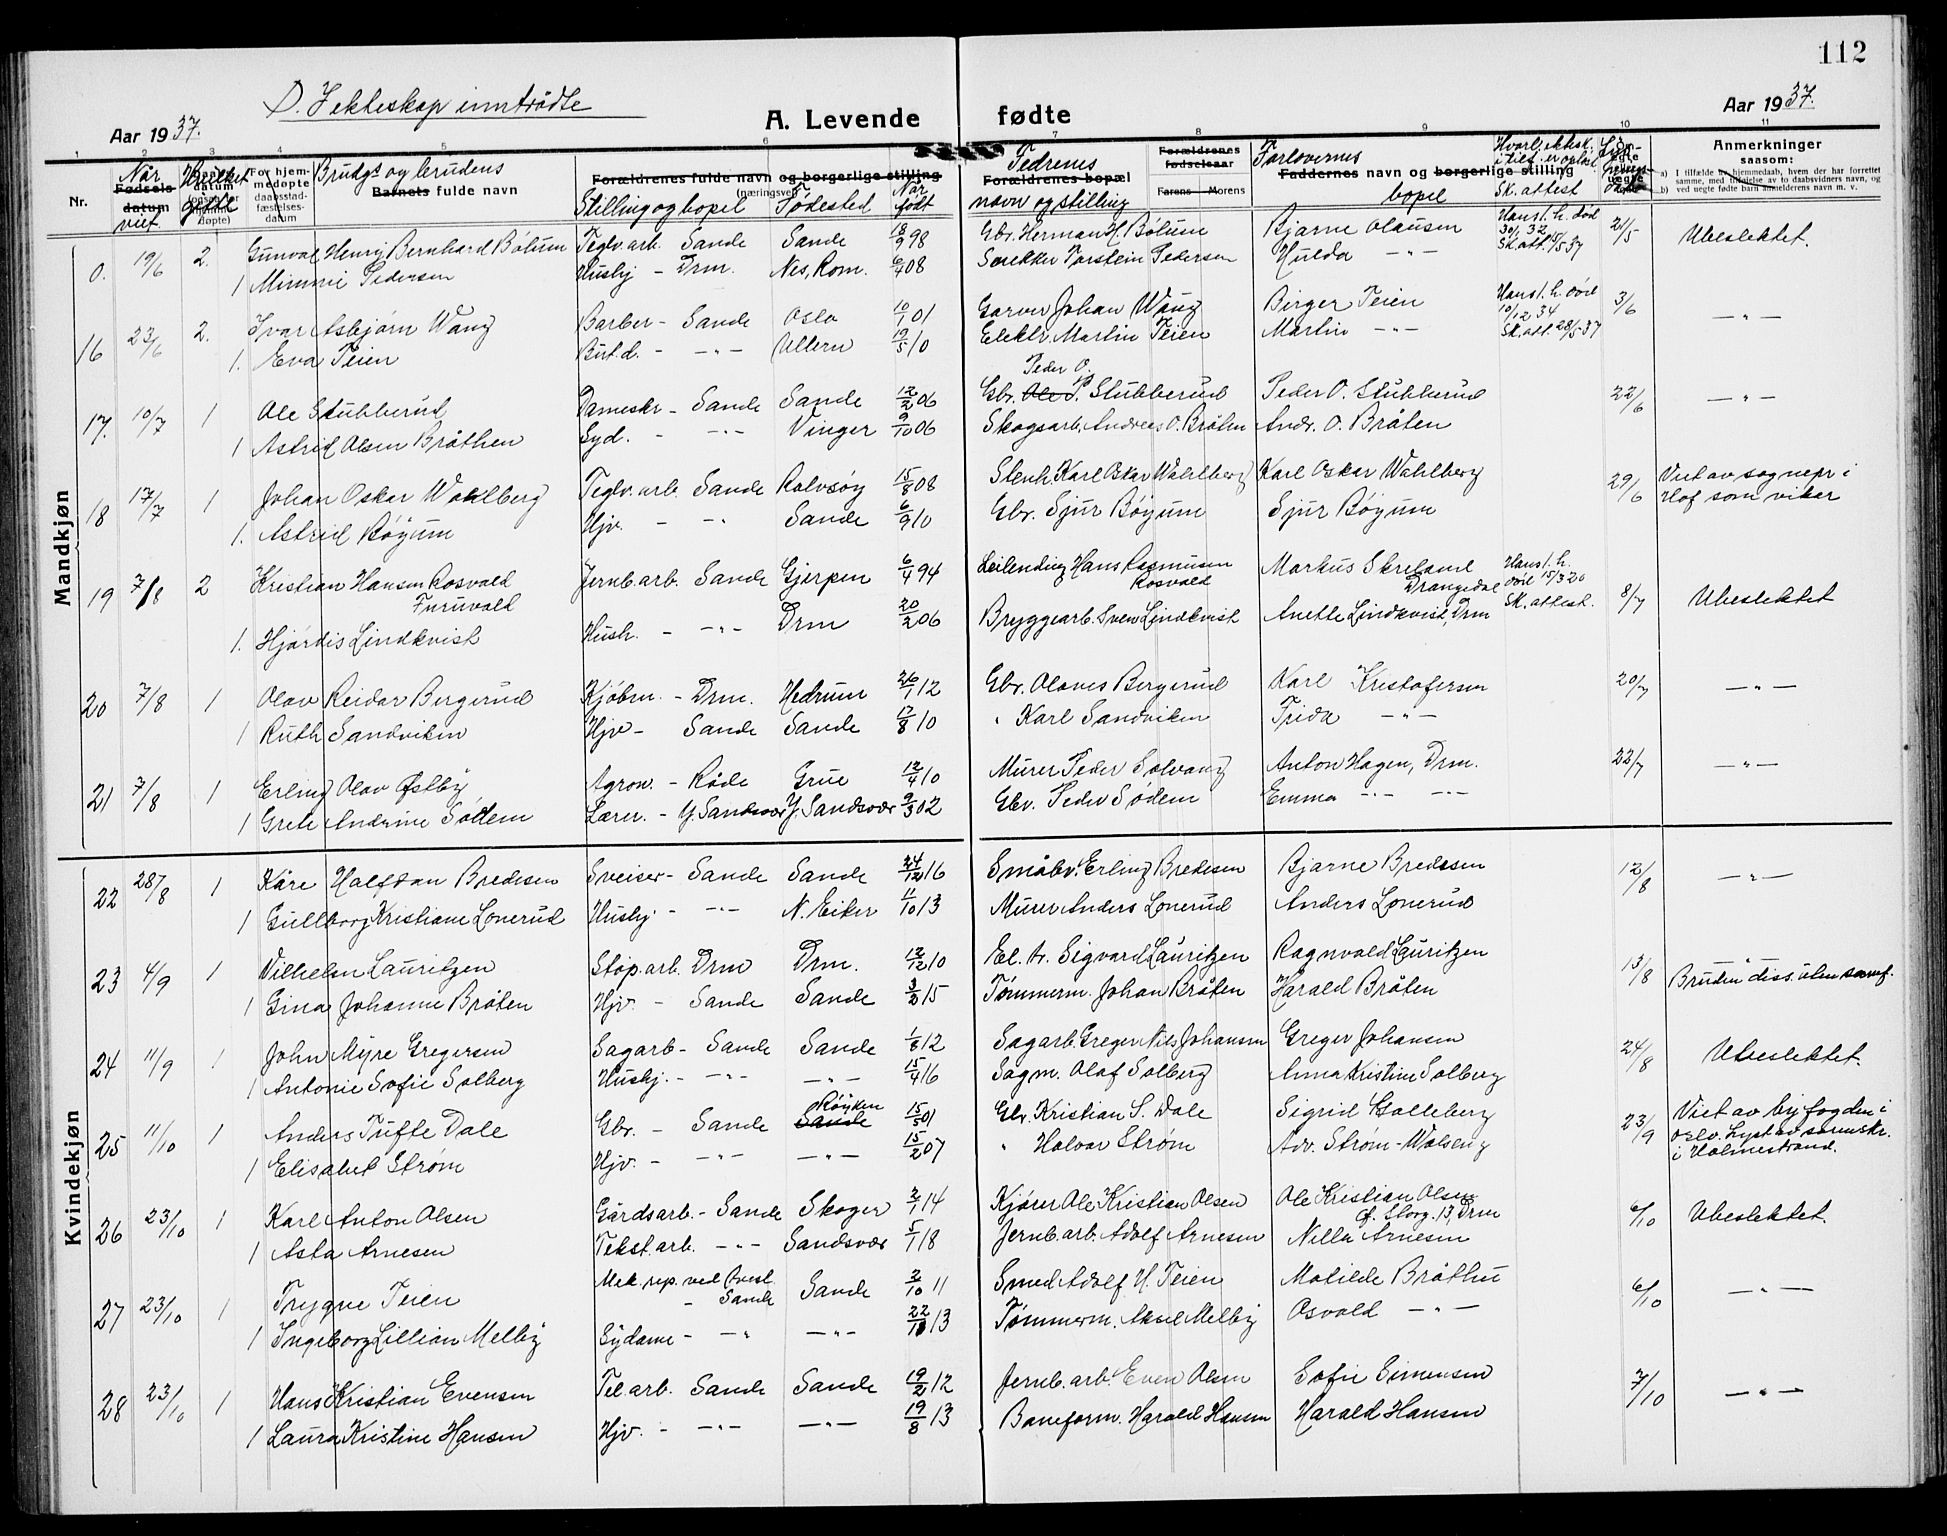 112
D. Jekteskap inntrådte
Aar 1937.
A. Levende fødte
Aar 1937.
1 2 3 4 5 6 7 8 9 10 11
Nr.
Når viet
Fødsels datum
Hvilket gifte
For hjemmedøpte daabsstadfæstelses-datum
Brudgs og brudens
Barnets fulde navn
Forældrenes fulde navn og borgerlige stilling
(næringsvei)
Stilling og bopel Fødested Når født
Fedrenes
Forældrenes bopæl
navn og stilling
Forældrenes fødselsaar
Farens Morens
Forlovernes
Faddernes navn og borgerlige stilling
bopel
Sk. attest
Anmerkninger
saasom:
a) I tilfælde av hjemmedaab, hvem der har forrettet samme, med tilføielse av to daabsvidners navn, og
b) ved uegte fødte barn anmelderens navn m. v.
Mandkjøn
0. 19/6 2. Gunval Henry Bernhard Bólum Teglv.arb. Sande Sande 18/9 98 Gbr. Herman H. Bólum Bjarne Olausen Hans 1. h. død 30/1 32 Sk. att. 15/5 37 21/5 Ubeslektet.
1 Mimmi Pedersen Hushj - Drm. Nes, Rom. 6/4 08 Snekker Torstein Pedersen Hulda -"-
16 23/6 2. Ivar Asbjørn Wang Barber - Sande Oslo 10/1 01 Garver Johan Wang Birger Teien Hans 1. h. død 10/12 34 Sk. att. 28/5-37 3/6 -"-
1. Eva Teien But.d. - -"- Ullern 19/5 10 Elektr. Martin Teien Martin -"-
17. 10/7 1 Ole Stubberud Dameskr - Sande Sande 12/2 06 Gbr. Ole P. Stubberud Peder O. Stubberud 22/6 -"-
Peder O.
1 Astrid Olsen Bråthen Syd. - -"- Vinger 9/10 06 Skogsarb. Andreas O. Bråten Andr. O. Bråten
18 17/7 1 Johan Oskar Wahlberg Teglv.arb. Sande Rolvsøy 15/8 08 Stenh. Karl Oskar Wahlberg Karl Oskar Wahlberg 29/6 Viet av sognepr i Hof som vikar
1. Astrid Bóyum Hjv. - -"- Sande 6/9 10 Gbr. Sjur Bóyum Sjur Bóyum
19 7/8 2 Kristian Hansen Rosvald Furuvald Jernb.arb. Sande Gjerpen 6/4 94 Leilending Hans Rasmusen Rosvald Markus Skreland Drangedal Hans 1. h. død 15/3 20 Sk. attest. 8/7 Ubeslektet
1. Hjórdis Lindkvist Hush. - -"- Drm 20/2 06 Bryggearb. Sven Lindkvist Anette Lindkvist, Drm
20 7/8 1 Olav Reidar Bergerud Kjøbm. - Drm. Hedrum 26/1 12 Gbr. Olaves Bergerud Karl Kristofersen 20/7 -"-
1 Ruth Sandviken Hjv - Sande Sande 17/8 10 " Karl Sandviken Frida -"-
21 7/8 1 Erling Olav Østby Agron. - Råde Grue 12/4 10 Murer Peder Solvang Anton Hagen, Drm. 22/7 -"-
1 Grete Andrine Sódem Lærer. - Y. Sandsvær Y. Sandsvær 9/3 02 Gbr. Peder Sódem Emma -"- -"-
Kvindekjøn
22 28/8 1 Kåre Halfdan Bredesen Sveiser - Sande Sande 24/12 16 Småbr. Erling Bredesen Bjarne Bredesen 12/8 -"-
1 Gullborg Kristiane Lonerud Hushj. - -"- N. Eiker 11/10 13 Murer Anders Lonerud Anders Lonerud
23 4/9 1 Vilhelm Lauritzen Støp.arb. Drm Drm. 12/12 10 El. tr. Sigvard Lauritzen Ragnvald Lauritzen 13/8 Bruden diss. uten samf.
1 Gina Johanne Bråten Hjv. - Sande Sande 3/2 15 Tømmerm. Johan Bråten Harald Bråten
24 11/9 1 John Myre Gregersen Sagarb - Sande Sande 1/8 12 Sagarb. Greger Nils Johansen Greger Johansen 24/8 Ubeslektet.
1 Antonie Sofie Solberg Hushj. - -"- -"- 15/4 16 Sagm. Olaf Solberg Anna Kristine Solberg
25 11/10 1 Anders Tufte Dale Gbr. - Sande Sande Røyken 15/5 01 Gbr. Kristian S. Dale Sigrid Holleberg 23/9 Viet av byfogden i Oslo. Lyst av sorenskr. i Holmestrand.
1 Elisabet Strøm Hjv. - -"- -"- 15/2 07 " Halvor Strøm Adv. Strøm-Walseng
26 23/10 1 Karl Anton Olsen Gårdsarb. - Sande Skoger 2/1 14 Kjører Ole Kristian Olsen Ole Kristian Olsen Ø. Storg. 13, Drm 6/10 Ubeslektet.
1 Asta Arnesen Tekst.arb. -"- Sandsvær 5/1 18 Jernb.arb. Adolf Arnesen Nilla Arnesen
27 23/10 1 Trygve Teien Mek. rep. ved - Sande Sande 2/10 11 Smed Adolf H. Teien Matilde Bråthen 6/10 -"-
1 Ingeborg Lillian Melby Sydame - -"- -"- 22/10 13 Tømmerm. Aksel Melby Osvald -"-
28 23/10 1 Hans Kristian Evensen Tel.arb. Sande Sande 19/2 12 Jernb.arb. Even Olsen Sofie Simensen 7/10 -"-
1 Laura Kristine Hansen Hjv. - -"- -"- 19/8 13 Baneform. Harald Hansen Harald Hansen